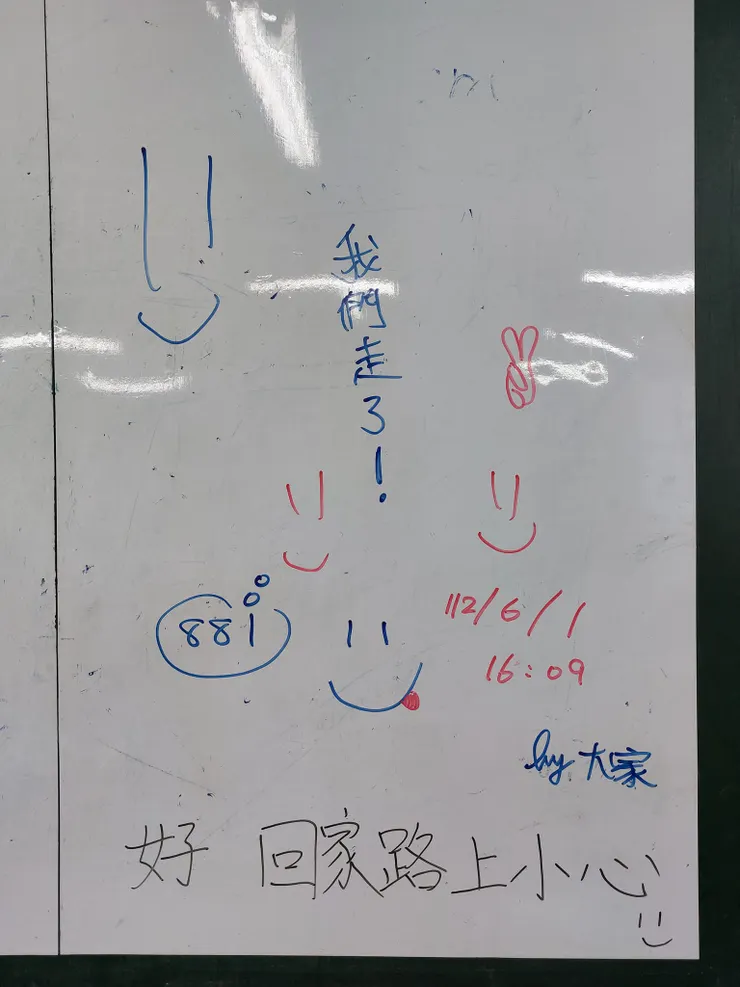 我們走了!
881
112/6/1
16:09
by 大家
好 回家路上小心